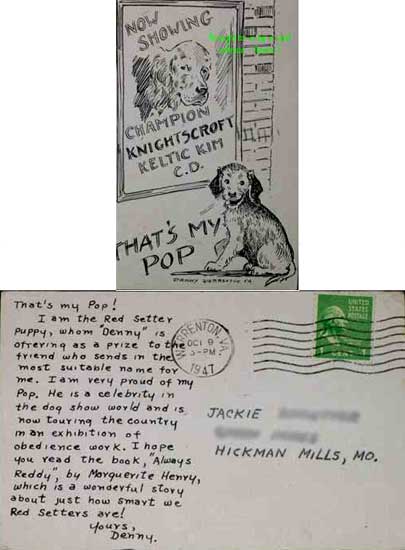 NOW
SHOWING
CHAMPION
KNIGHTSCROFT
KELTIC KIM
C.D.
THAT'S MY
POP
That's my Pop!
I am the Red Setter
puppy, whom "Denny" is
offering as a prize to the
friend who sends in the
most suitable name for
me. I am very proud of my
Pop. He is a celebrity in
the dog show world and is
now touring the country
in an exhibition of
obedience work. I hope
you read the book, "Always
Reddy", by Marguerite Henry,
which is a wonderful story
about just how smart we
Red Setters are!
Yours,
Denny.
WARRENTON VA.
OCT 9
3-PM
1947
UNITED
STATES
POSTAGE
JACKIE
HICKMAN MILLS, MO.